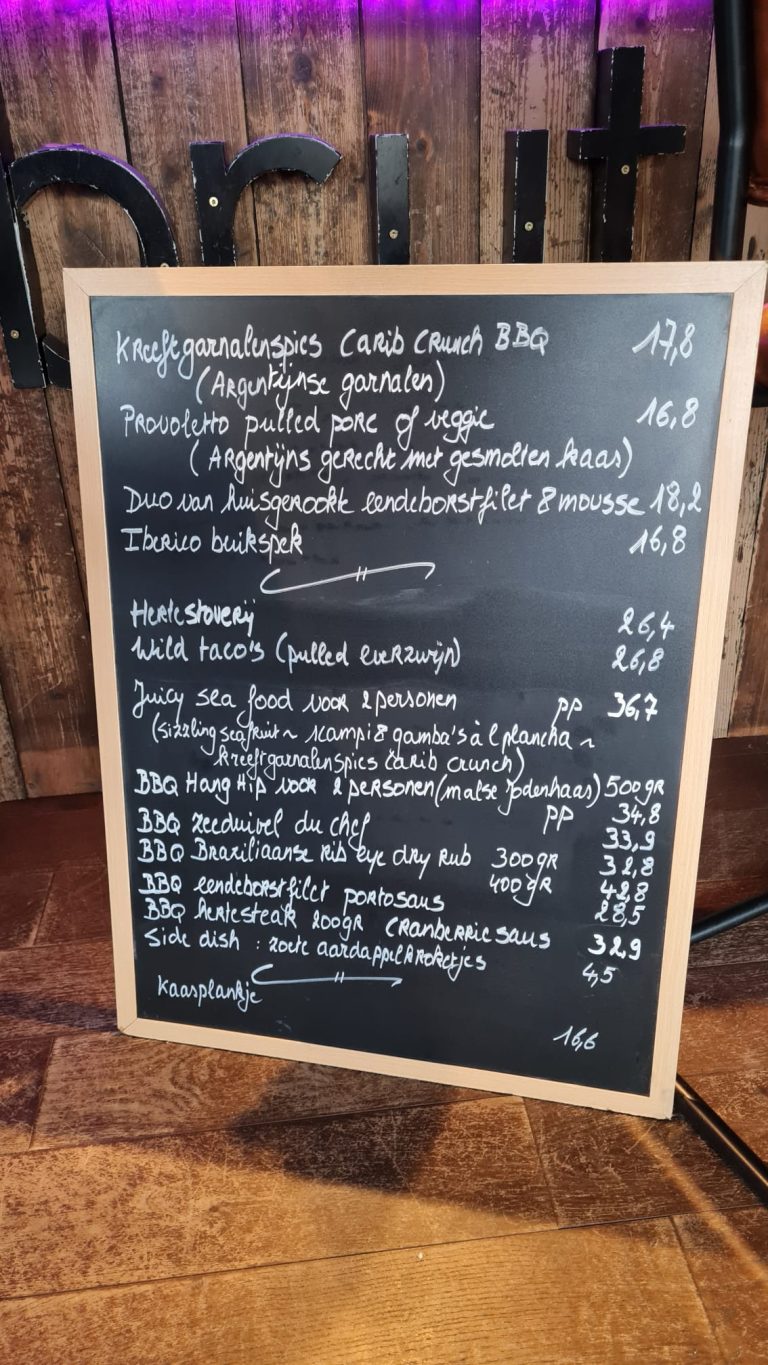 nruit
Kreeftgarnalenspies Carib Crunch BBQ 17,8
(Argentijnse garnalen)
Provoletto pulled porc of veggie 16,8
(Argentijns gerecht met gesmolten kaas)
Duo van huisgerookte eendeborstfilet & mousse 18,2
Iberico buikspek 16,8
Hertestoverij 26,4
Wild taco's (pulled everzwijn) 26,8
Juicy sea food voor 2 personen pp 36,7
(sizzling seafruit ~ scampi & gamba's à l plancha ~
kreeftgarnalenspies carib crunch)
BBQ Hang Hip voor 2 personen (malse Jodenhaas) 500gr
pp 34,8
BBQ zeeduivel du chef 33,9
BBQ Braziliaanse Rib eye dry Rub 300gr 32,8
400gr 42,8
BBQ eendeborstfilet portosaus 28,5
BBQ hertesteak 200gr cranberriesaus 32,9
Side dish : zoete aardappelkroketjes 4,5
Kaasplankje
16,6